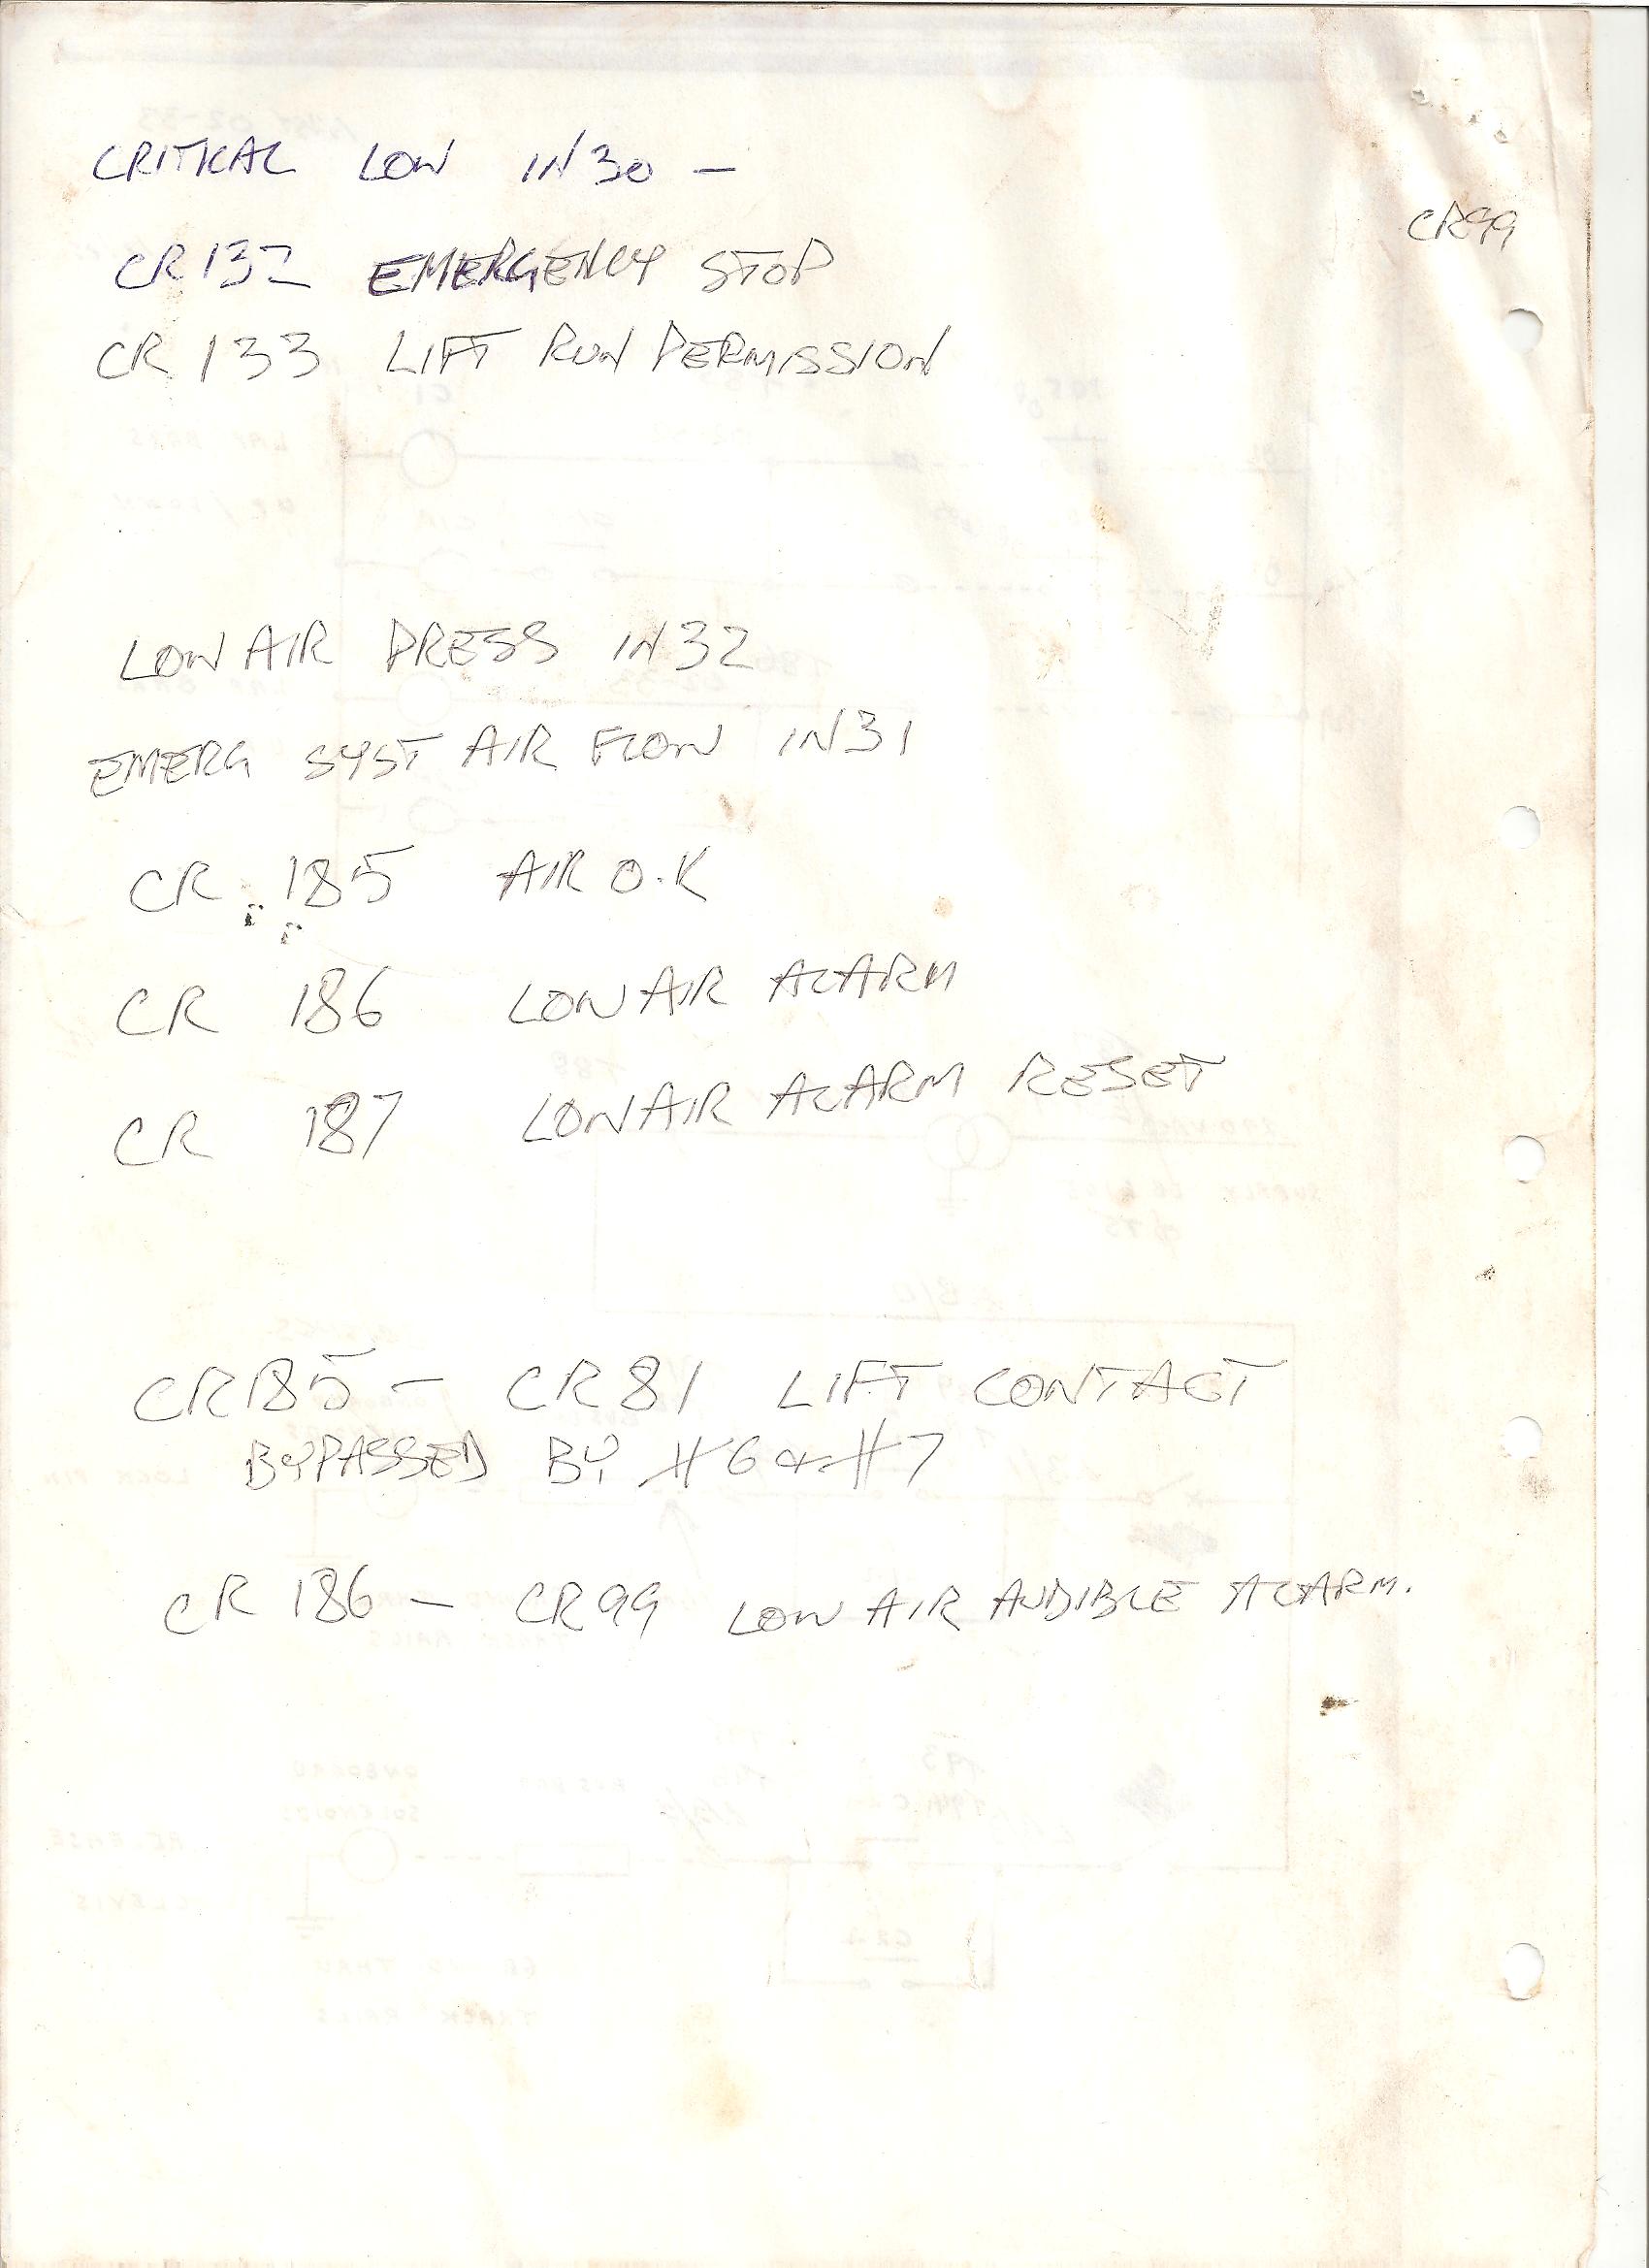 CRITICAL LOW IN30 -
CR99
CR132 EMERGENCY STOP
CR 133 LIFT RUN PERMISSION
LOW AIR PRESS IN32
EMERG SYST AIR FLOW IN31
CR 185 AIR O.K
CR 186 LOW AIR ALARM
CR 187 LOW AIR ALARM RESET
CR185 - CR81 LIFT CONTACT
BYPASSED BY #6 & #7
CR 186 - CR99 LOW AIR AUDIBLE ALARM.